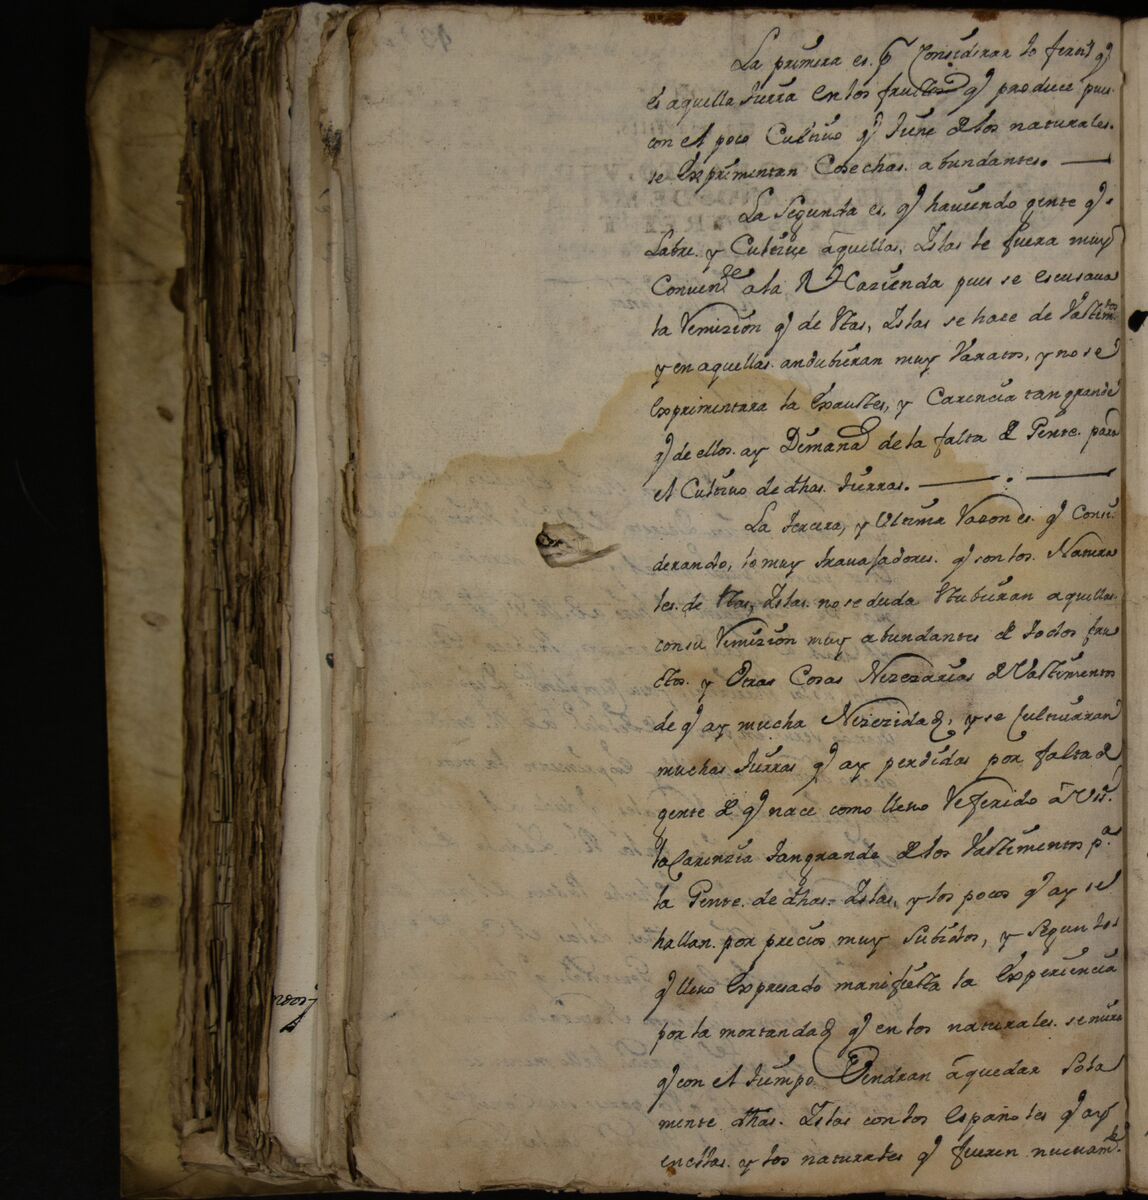 La primera es, pª Considerar lo fertil q̃
es aquella tierra en los fructos q̃ produce pues
con el poco Cultiuo q̃ tiene de los naturales.
se exprimentan Cosechas abundantes.
La segunda es, q̃ hauiendo gente q̃
Labre y Cultiue aquellas, Islas le fuera muy
Conuenᵗᵉ a la Rˡ Hazienda pues se escusaua
la remizion q̃ de estas, Islas se haze de Vastimᵗᵒˢ
y en aquellas andubieran muy Varatos, y no se
exprimentara la exaustes, y Carencia tan grande
q̃ de ellos ay Dimanad de la falta de Gente para
el Cultiuo de dhas tierras.
La tercera, y Vltima Razon es. q̃ Consi-
derando, lo muy trauajadores q̃ son los Natura
les de estas, Islas no se duda estubieran aquellas
con su remizion muy abundantes de todos fru
ctos y Otras Cosas Nezezarias de Vastimentos
de q̃ ay mucha Nezezidad, y se Cultiuaran
muchas tierras q̃ ay perdidas por falta de
gente de q̃ nace como lleuo referido a VSᵃ.
la Carenzia tan grande de los Vastimentos pª
la Gente de dhas Islas, y los pocos q̃ ay se
hallan por precios muy subidos, y segun lo
q̃ lleuo expresado manifiesta la experiencia
por la mortandad q̃ en los naturales
q̃ con el tiempo Vendran a quedar Sola
mente dhas Islas con los españoles q̃ ay
en ellas y los naturales q̃ fueren nueuamᵗᵉ